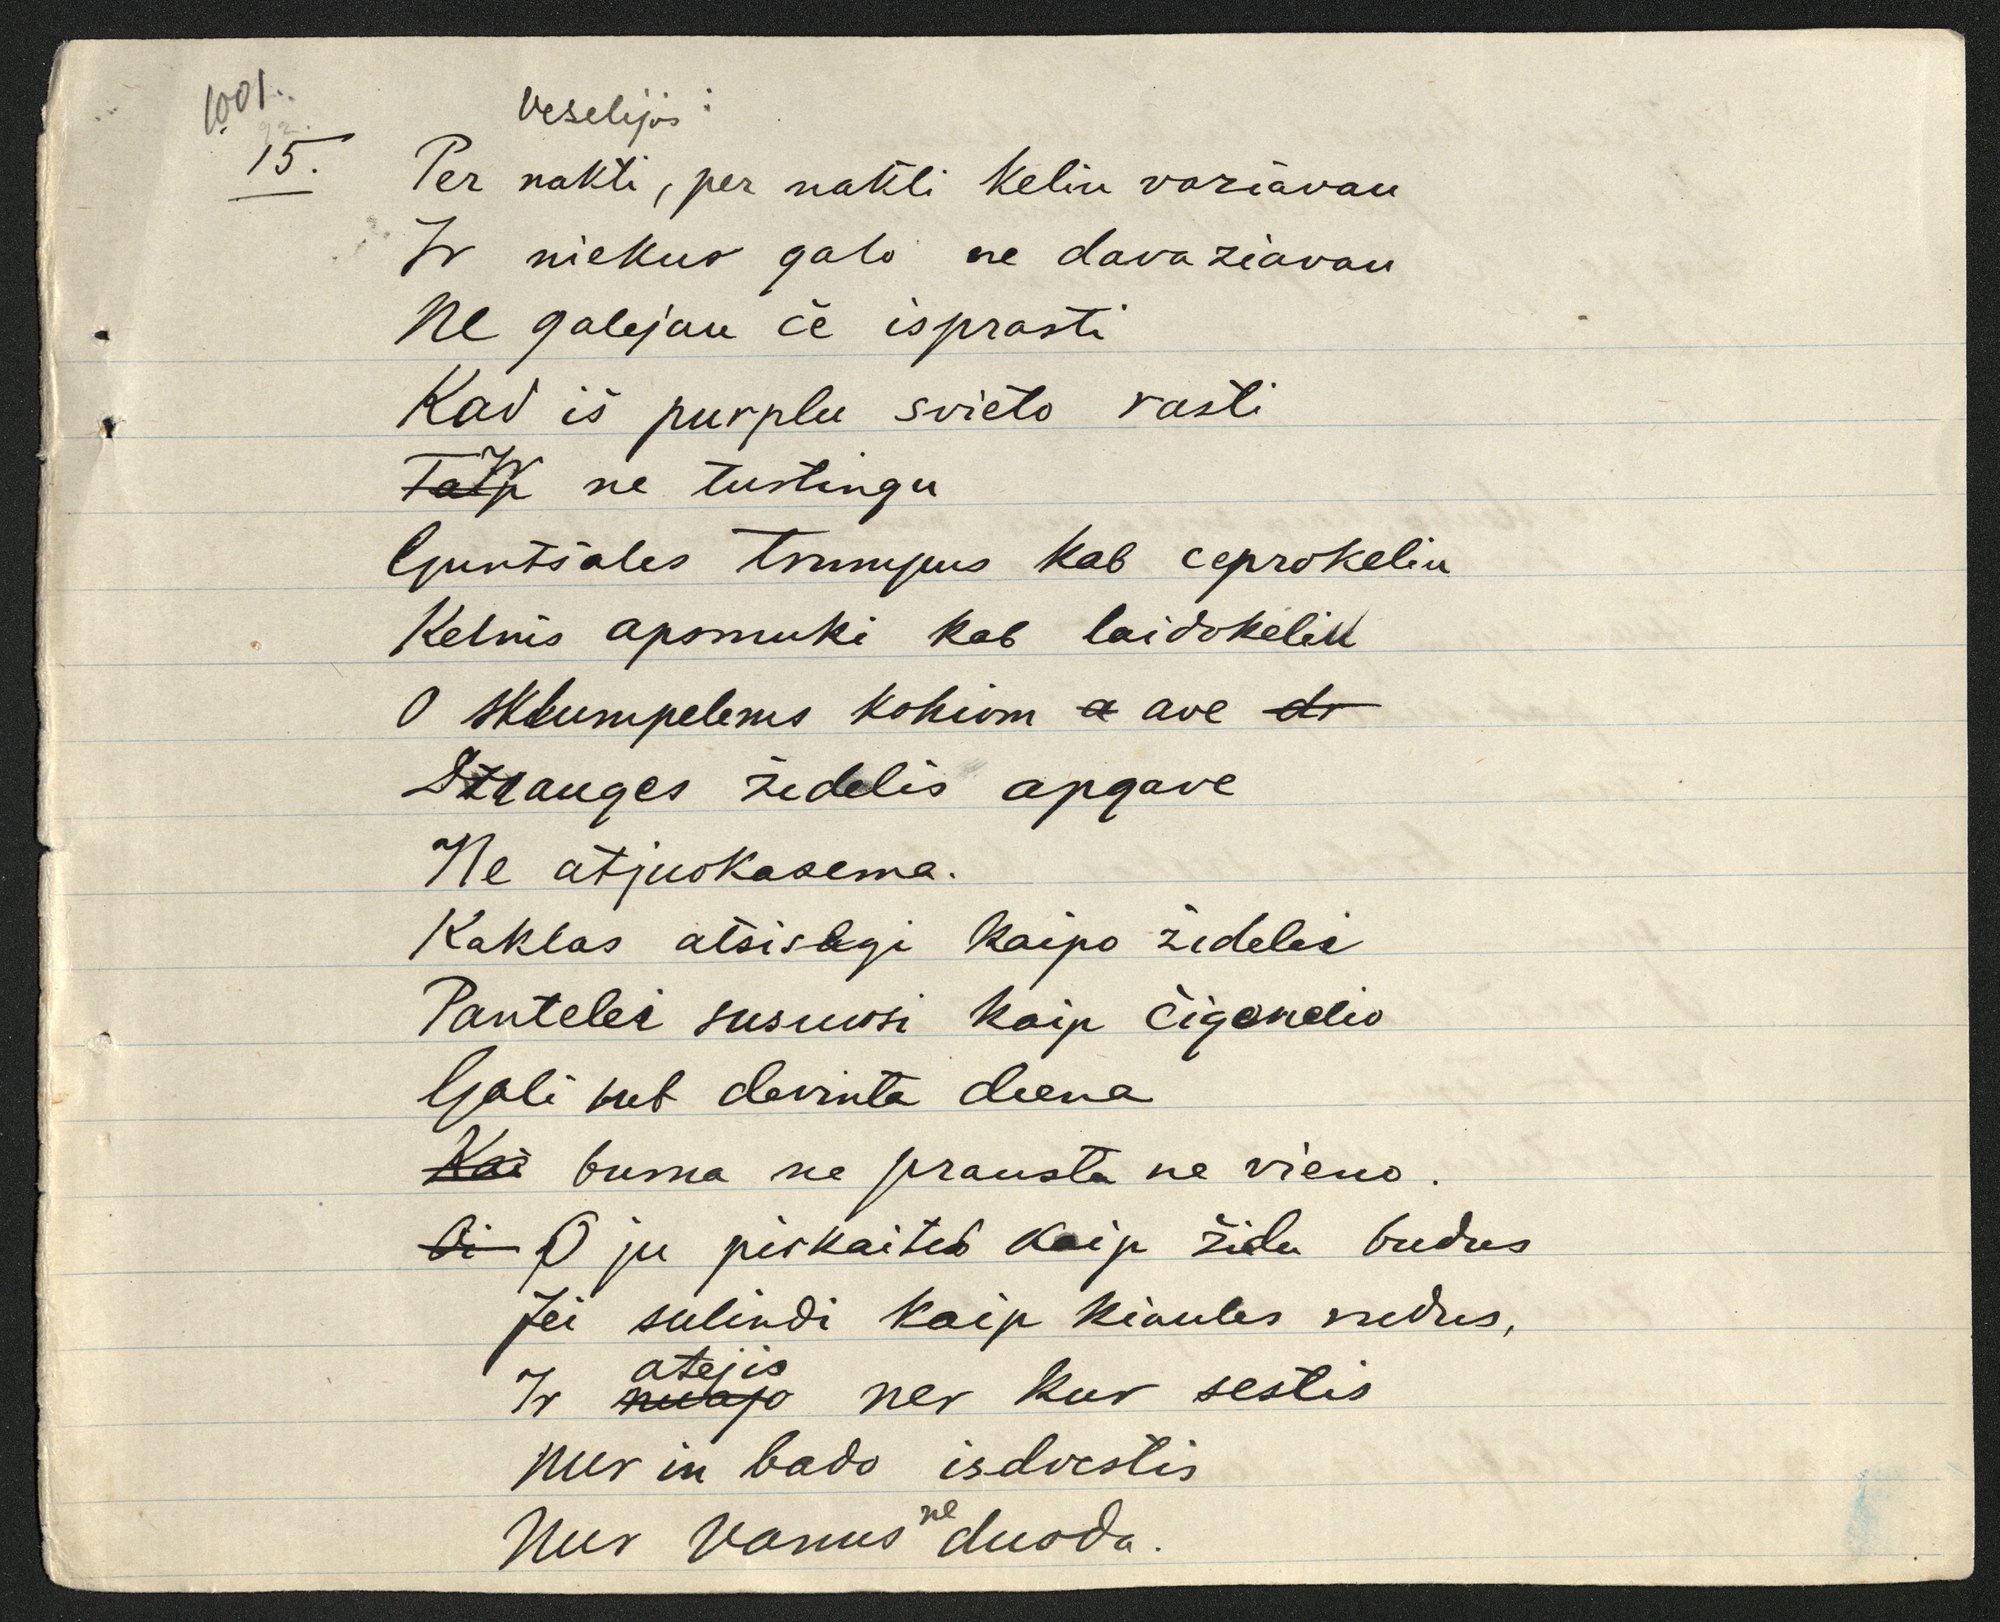 1001.
92.
15.
Veselijos:
Per nakti, per nakti keliu vaziavau
Ir niekur galo ne davaziavau
Ne galejau če isprasti
Kad iš purplu svieto rasti
Taip Ir ne tustingu
Guntšales trumpus kab ceprokeliu
Kelnis apsmuki kab laidokeliu
O sklumpelems kokiom a ave dr
Drauges židelis apgave
Ne atjuokasema.
Kaklas atsisegi kaipo židelei
Pantelei susuosi kaip čigonelio
Gali but devinta diena
Kai burna ne prausta ne vieno.
Oi O ju pirkaites kaip židu budus
Jei sulindi kaip kiaules rudus,
Ir nuajo atejis ner kur sestis
Nur in bado isdvestis
Nur vanus ne duoda.